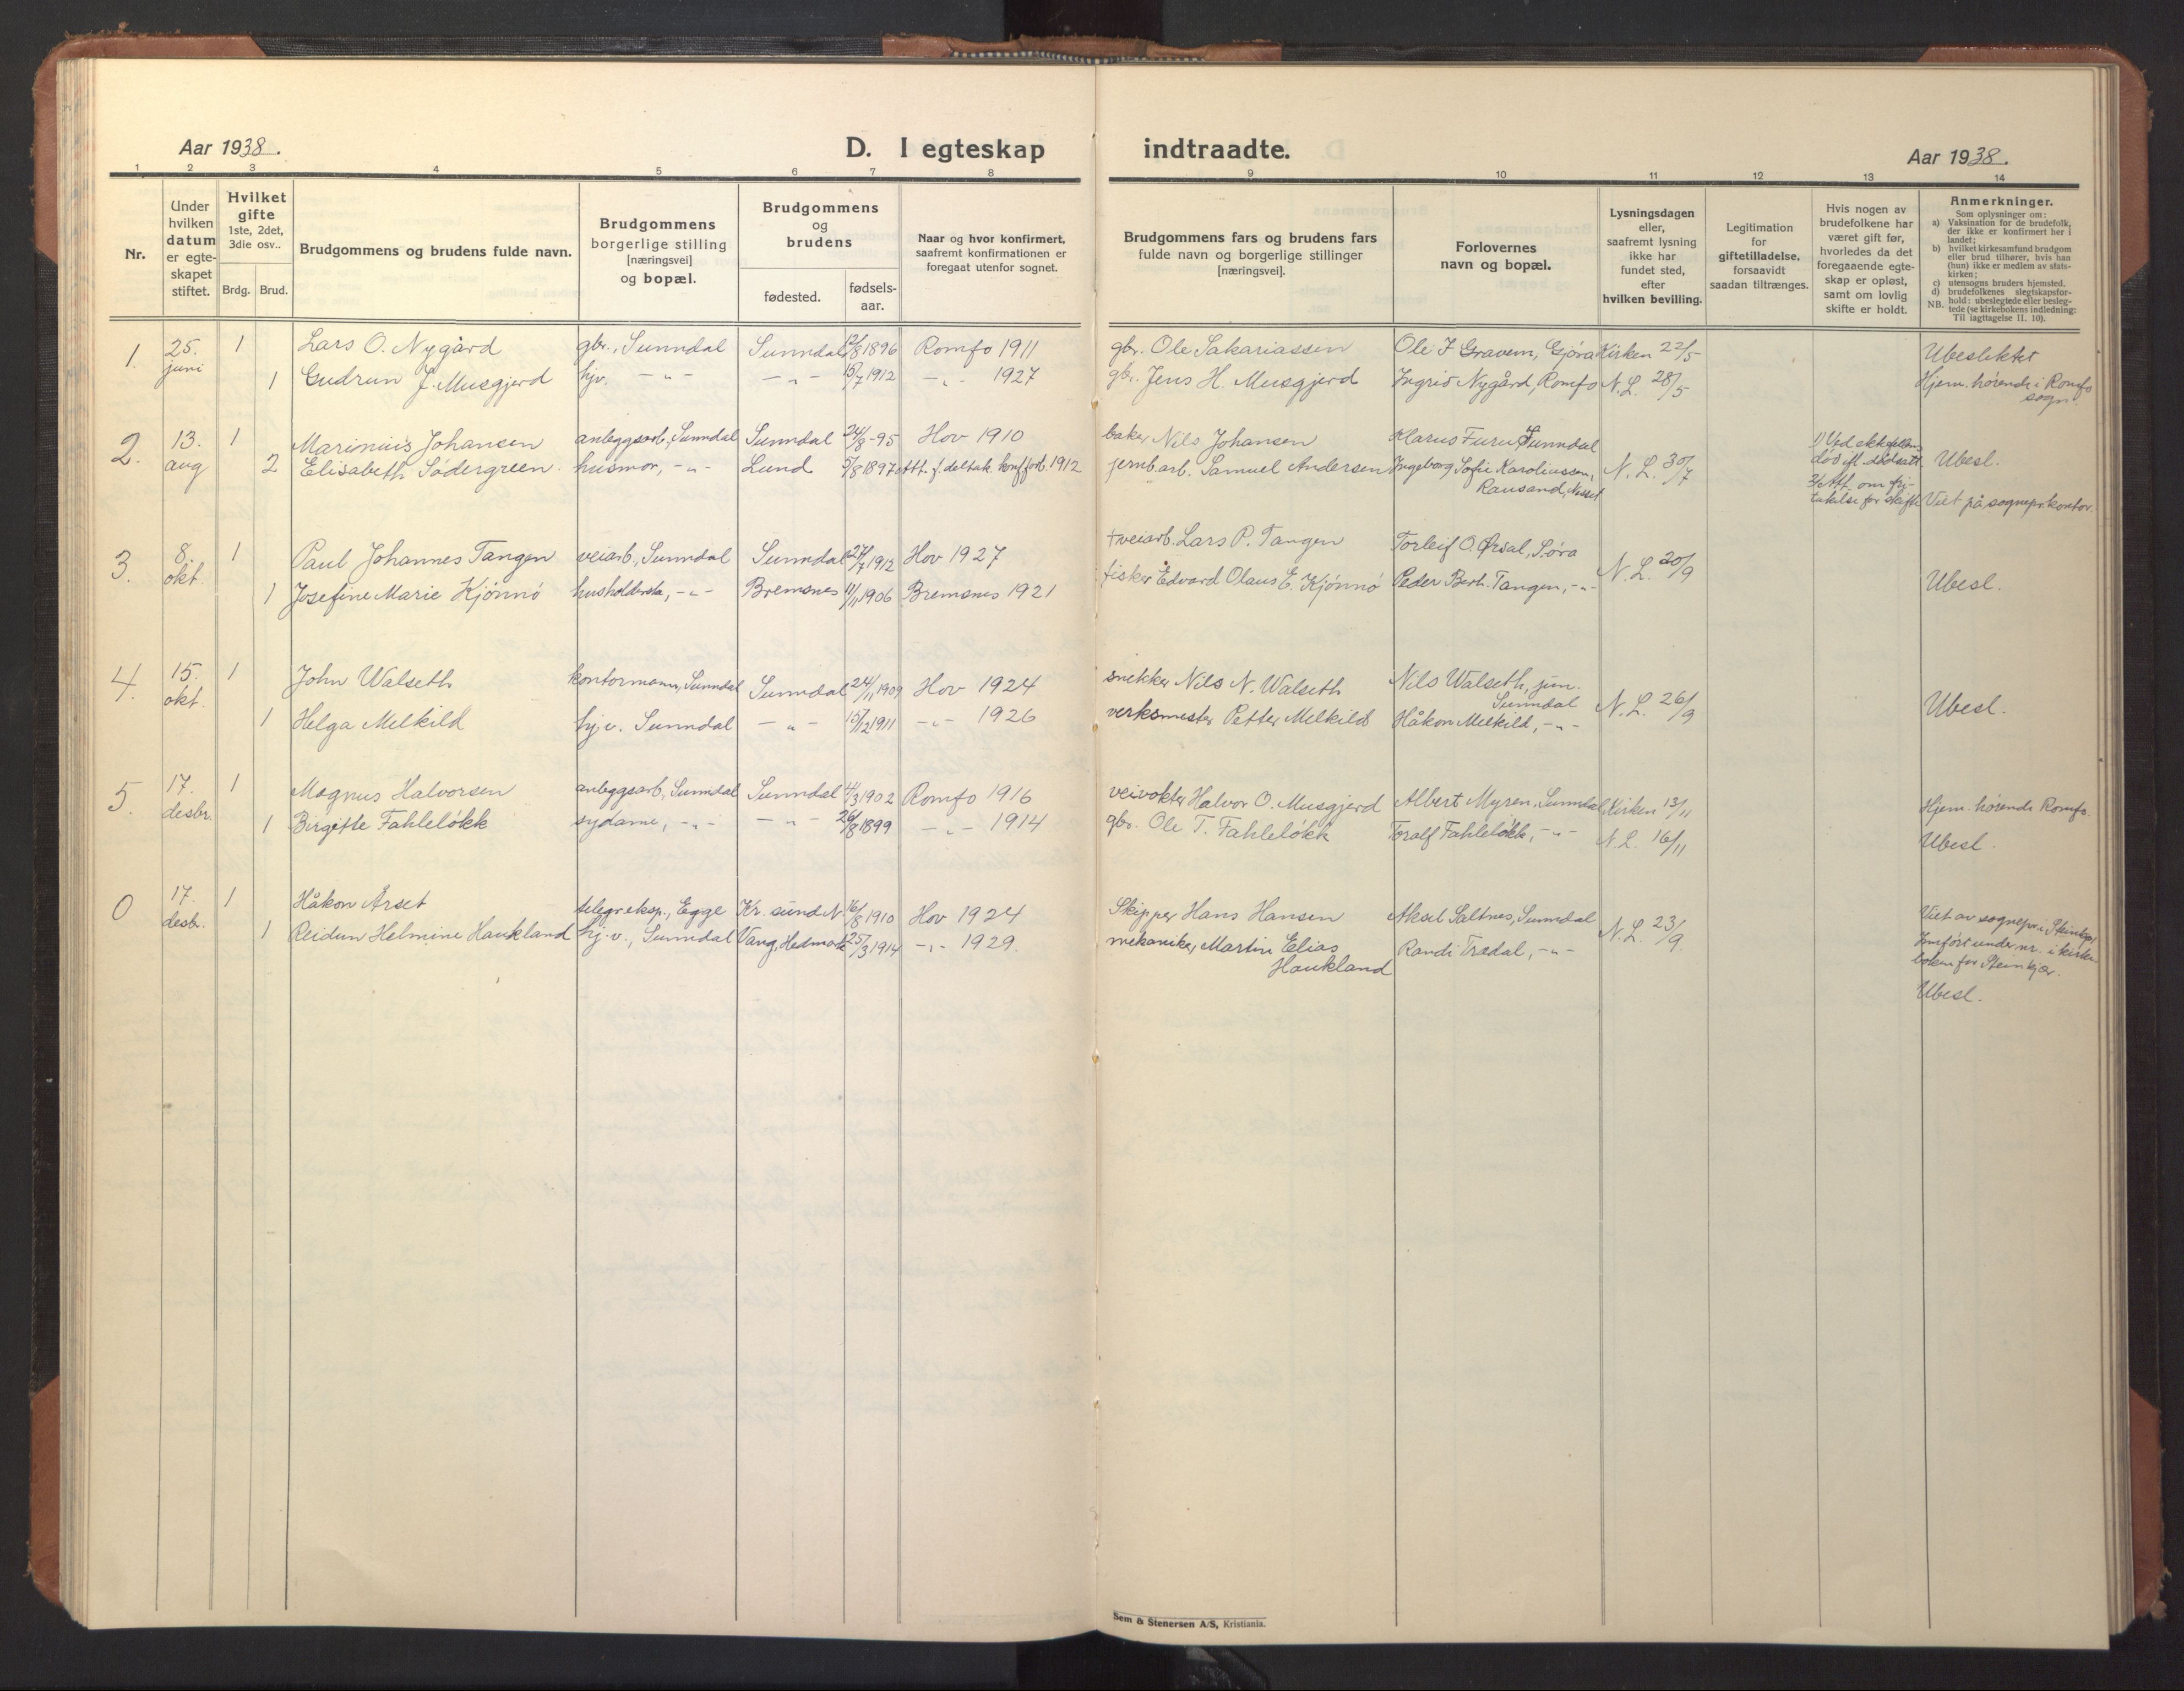 Aar 1938.
D. I egteskap indtraadte.
Aar 1938.
1 2 3 4 5 6 7 8 9 10 11 12 13 14
Nr.
Under hvilken datum er egteskapet stiftet.
Hvilket gifte 1ste, 2det, 3die osv..
Brdg. Brud.
Brudgommens og brudens fulde navn.
Brudgommens borgerlige stilling [næringsvei] og bopæl.
Brudgommens og brudens
fødested. fødselsaar.
Naar og hvor konfirmert, saafremt konfirmationen er foregaat utenfor sognet.
Brudgommens fars og brudens fars fulde navn og borgerlige stillinger [næringsvei].
Forlovernes navn og bopæl.
Lysningsdagen eller, saafremt lysning ikke har fundet sted, efter hvilken bevilling.
Legitimation for giftetilladelse, forsaavidt saadan tiltrænges.
Hvis nogen av brudefolkene har været gift før, hvorledes da det foregaaende egteskap er opløst, samt om lovlig skifte er holdt.
Anmerkninger.
Som oplysninger om:
a) Vaksination for de brudefolk, der ikke er konfirmert her i landet;
b) hvilket kirkesamfund brudgom eller brud tilhører, hvis han (hun) ikke er medlem av statskirken;
c) utensogns bruders hjemsted.
d) brudefolkenes slegtskapsforhold: ubeslegtede eller beslegtede (se kirkebokens indledning: Til iagttagelse II. 10).
NB.
1. 25. juni 1 Lars O. Nygård gbr., Sunndal Sunndal 2/8 1896 Romfo 1911 gbr. Ole Sakariassen Ole J Gravem, Gjøra Kirken 22/5 Ubeslektet
1 Gudrun J. Musgjerd hjv. -"- -"- 15/7 1912 -"- 1927 gbr. Jens H. Musgjerd Ingrid Nygård, Romfo N. L. 28/5 Hjem. hørende i Romfo sogn.
2. 13. aug 1 Marinius Johansen anleggsarb., Sunndal Sunndal 24/8-95 Hov 1910 baker Nils Johansen Klarus Furu, Sunndal
2 Elisabeth Södergreen husmor, -"- Lund 5/8 1897 Att. f. deltak. konf.forb. 1912 jernb.arb. Samuel Andersen Ingeborg Sofie Karoliussen, Rausand, Nesset N. L. 30/7
1) Ved ektefellens død ifl. dødsatt. 2) Att. om fritakelse for skifte
Ubesl.
Viet på sognepr.kontor.
3. 8. okt. 1 Paul Johannes Tangen veiarb., Sunndal Sunndal 27/7 1912 Hov 1927 + veiarb. Lars P. Tangen Torleif O. Ørsal, S.øra
1 Josefine Marie Kjønnø husholderske, -"- Bremsnes 11/11 1906 Bremsnes 1921 fisker Edvard Olaus E. Kjønnø Peder Berh. Tangen, -"- N. L. 20/9 Ubesl.
4. 15. okt. 1 John Walseth kontormann, Sunndal Sunndal 24/1 1909 Hov 1924 snekker Nils N. Walseth Nils Walseth, jun. Sunndal
1 Helga Melkild hjv. Sunndal -"- 15/12 1911 -"- 1926 verksmester Petter Melkild Håkon Melkild, -"- N. L. 26/9 Ubesl.
5. 17. desbr. 1 Magnus Halvorsen anleggsarb., Sunndal Sunndal 4/3 1902 Romfo 1916 veivokter Halvor O. Musgjerd Albert Myren, Sunndal Kirken 13/11 Hjem. hørende Romfo.
1 Birgitte Fahleløkk sydame, -"- -"- 26/8 1899 -"- 1914 gbr. Ole T. Fahleløkk Toralf Fahleløkk, -"- N. L. 16/11 Ubesl.
0 17. desbr. 1 Håkon Årset telegr.eksp., Egge Kr.sund N. 16/8 1910 Hov 1924 Skipper Hans Hansen Aksel Saltnes, Sunndal
1 Reidun Helmine Haukland hjv., Sunndal Vang, Hedmark 25/3 1914 -"- 1929. mekaniker Martin Elias Haukland Randi Trædal, -"- N. L. 23/9.
Viet av sognepr. i Steinkjer
Innført under nr. i kirkeboken for Steinkjer.
Ubesl.
Sem & Stenersen A/S, Kristiania.